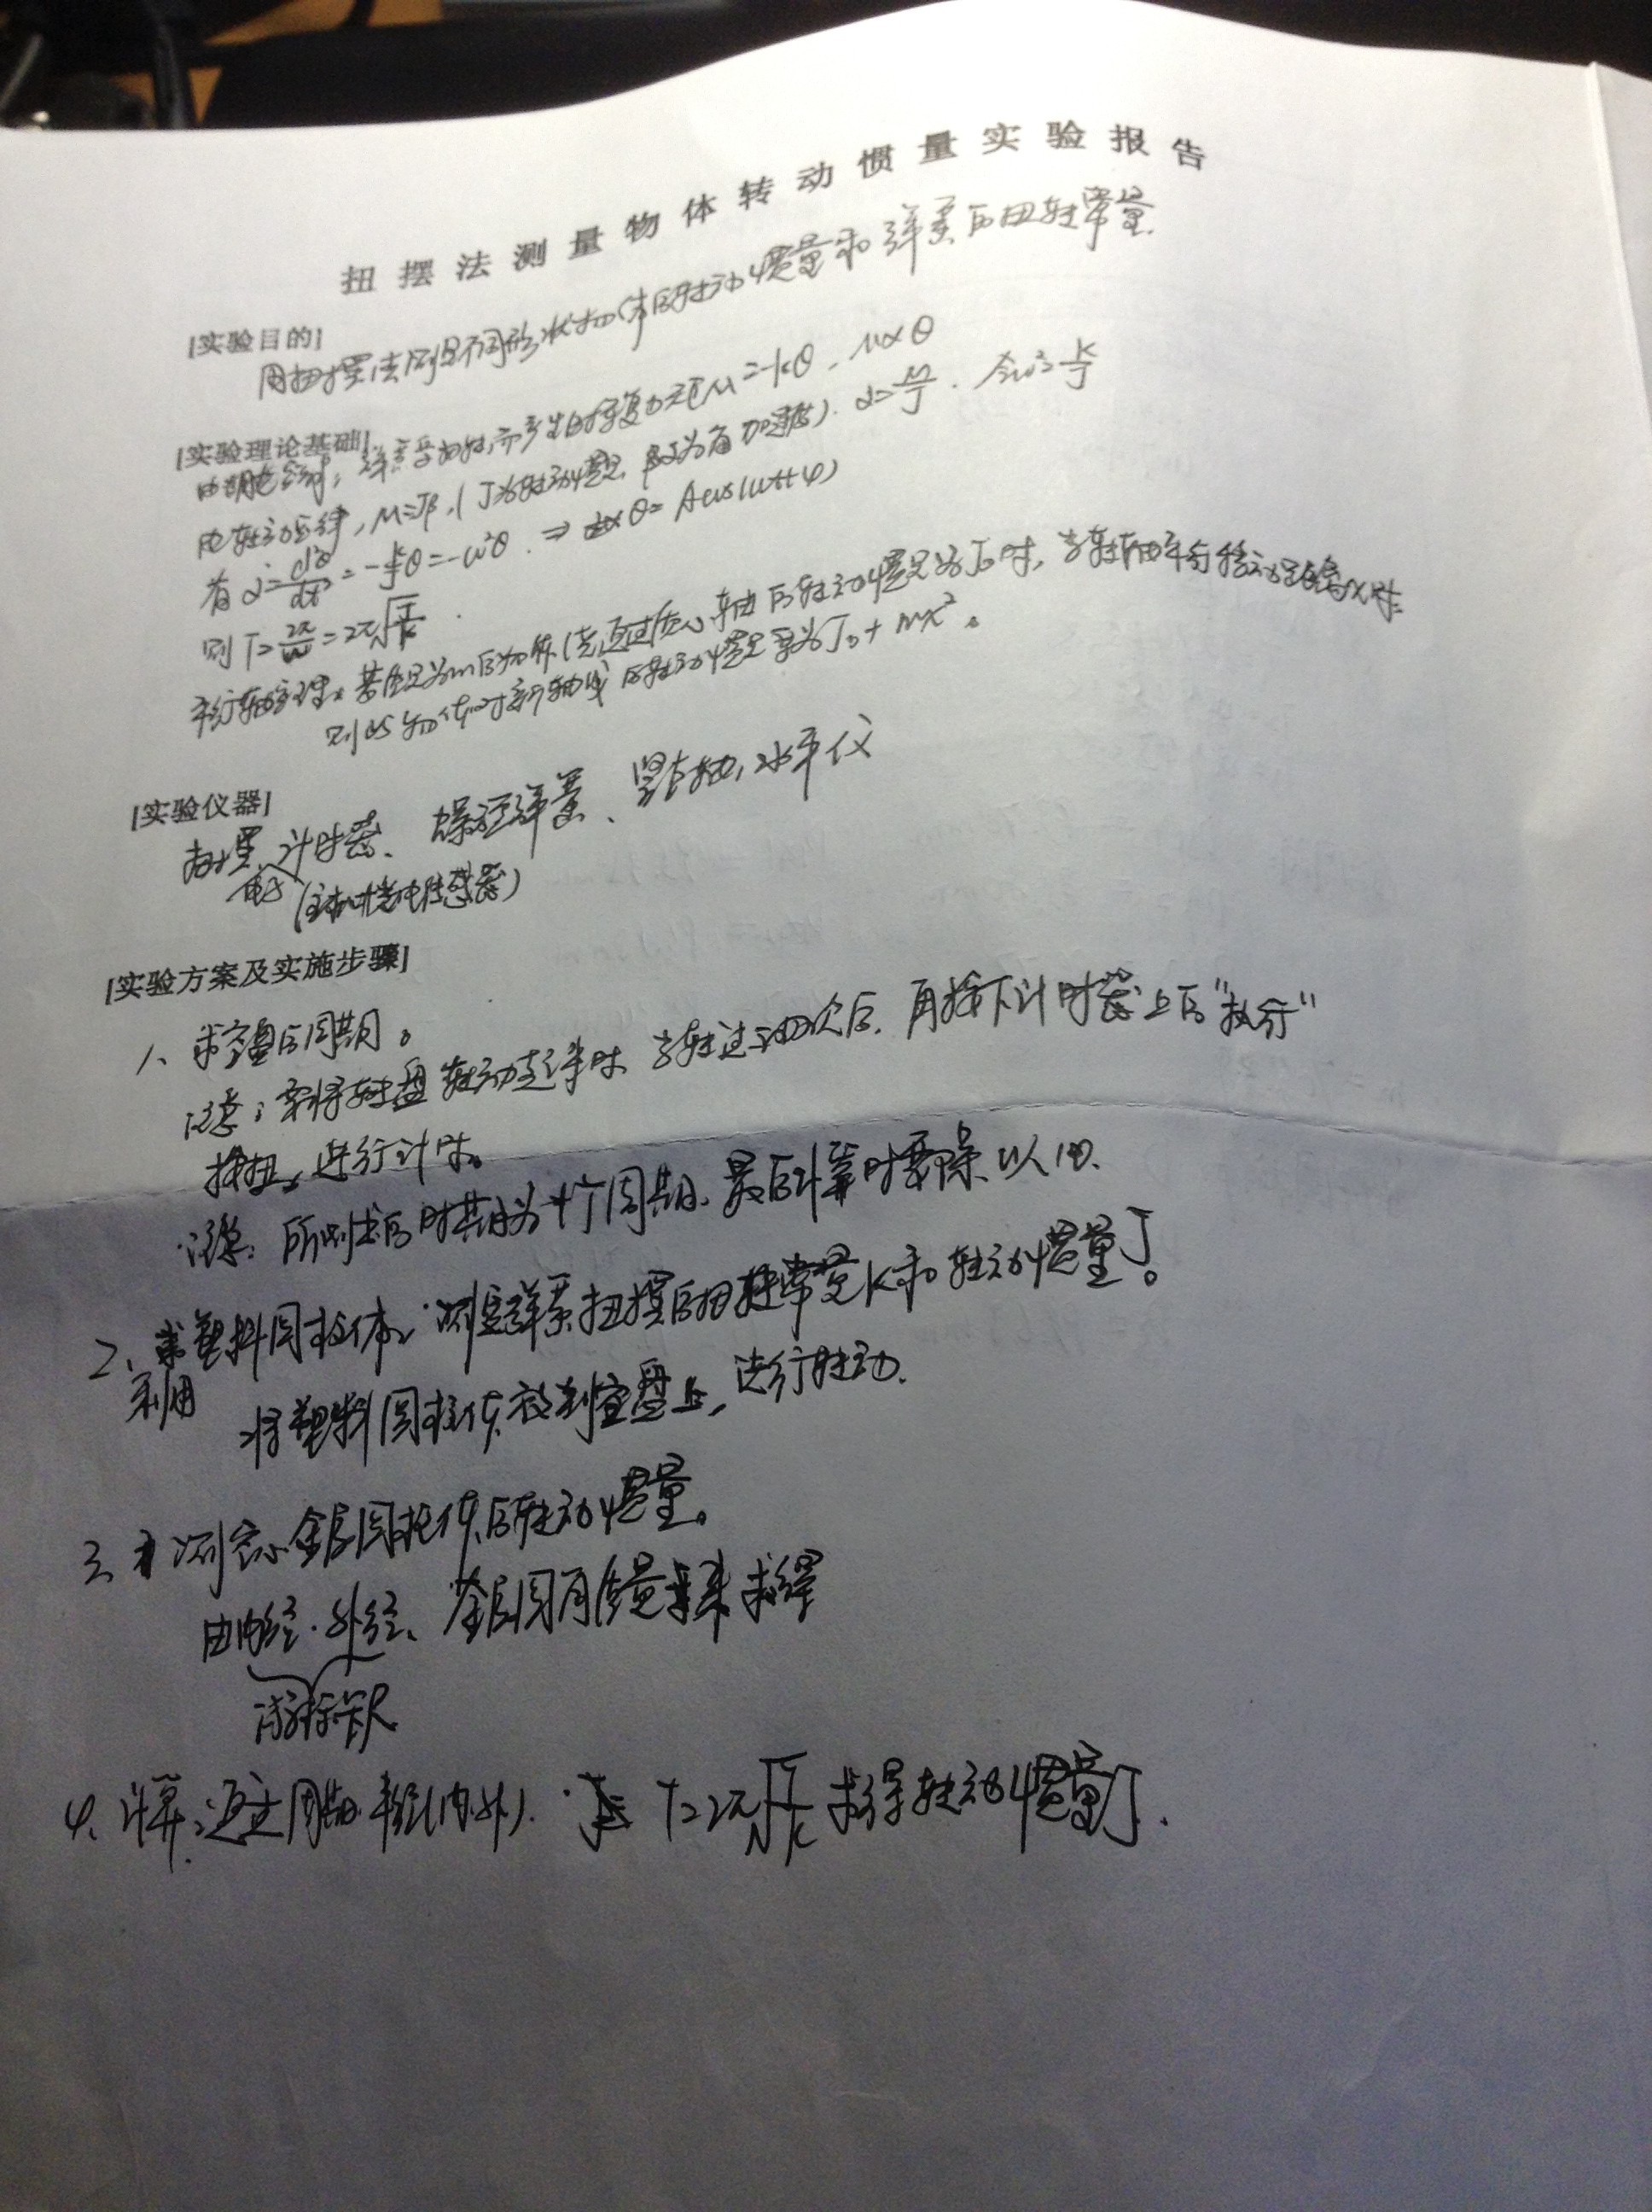 扭摆法测量物体转动惯量实验报告
|实验目的|
用扭摆法测定不同形状物体的转动惯量和弹簧的扭转常量.
|实验理论基础|
由胡克定律, 弹簧受扭转而产生的恢复力矩M=-kθ. M∝θ
由转动定律, M=Jβ, (J为转动惯量, β为角加速度). α=M/J. 令ω²=k/J
有 α=d²θ/dt²=-k/Jθ=-ω²θ. ⇒ θ=Acos(ωt+φ)
则T=2π/ω=2π√(J/k).
平行轴定理. 若质量为m的物体绕通过质心轴的转动惯量为J₀时, 当转轴平行移动距离x时.
则此物体对新轴线的转动惯量变为J₀+mx².
|实验仪器|
扭摆、计时器、螺旋弹簧、竖直轴, 水平仪
电子 (主机+光电传感器)
|实验方案及实施步骤|
1、求空盘的周期。
注意: 要将转盘转动起来时 当转过 次后. 再按下计时器上的“执行”
按扭, 进行计时。
注意: 所测出的时期为十个周期. 最后计算时要除以10.
2、塑料圆柱体, 测定弹簧扭摆的扭转常量k和转动惯量J。
利用 将塑料圆柱体放到空盘上, 进行转动.
3、测定金属圆柱体的转动惯量.
由内径.外径、金属圆 质量来求得
游标卡尺
4、计算: 通过周期 半径(内.外). T=2π√(J/k) 求得转动惯量J.